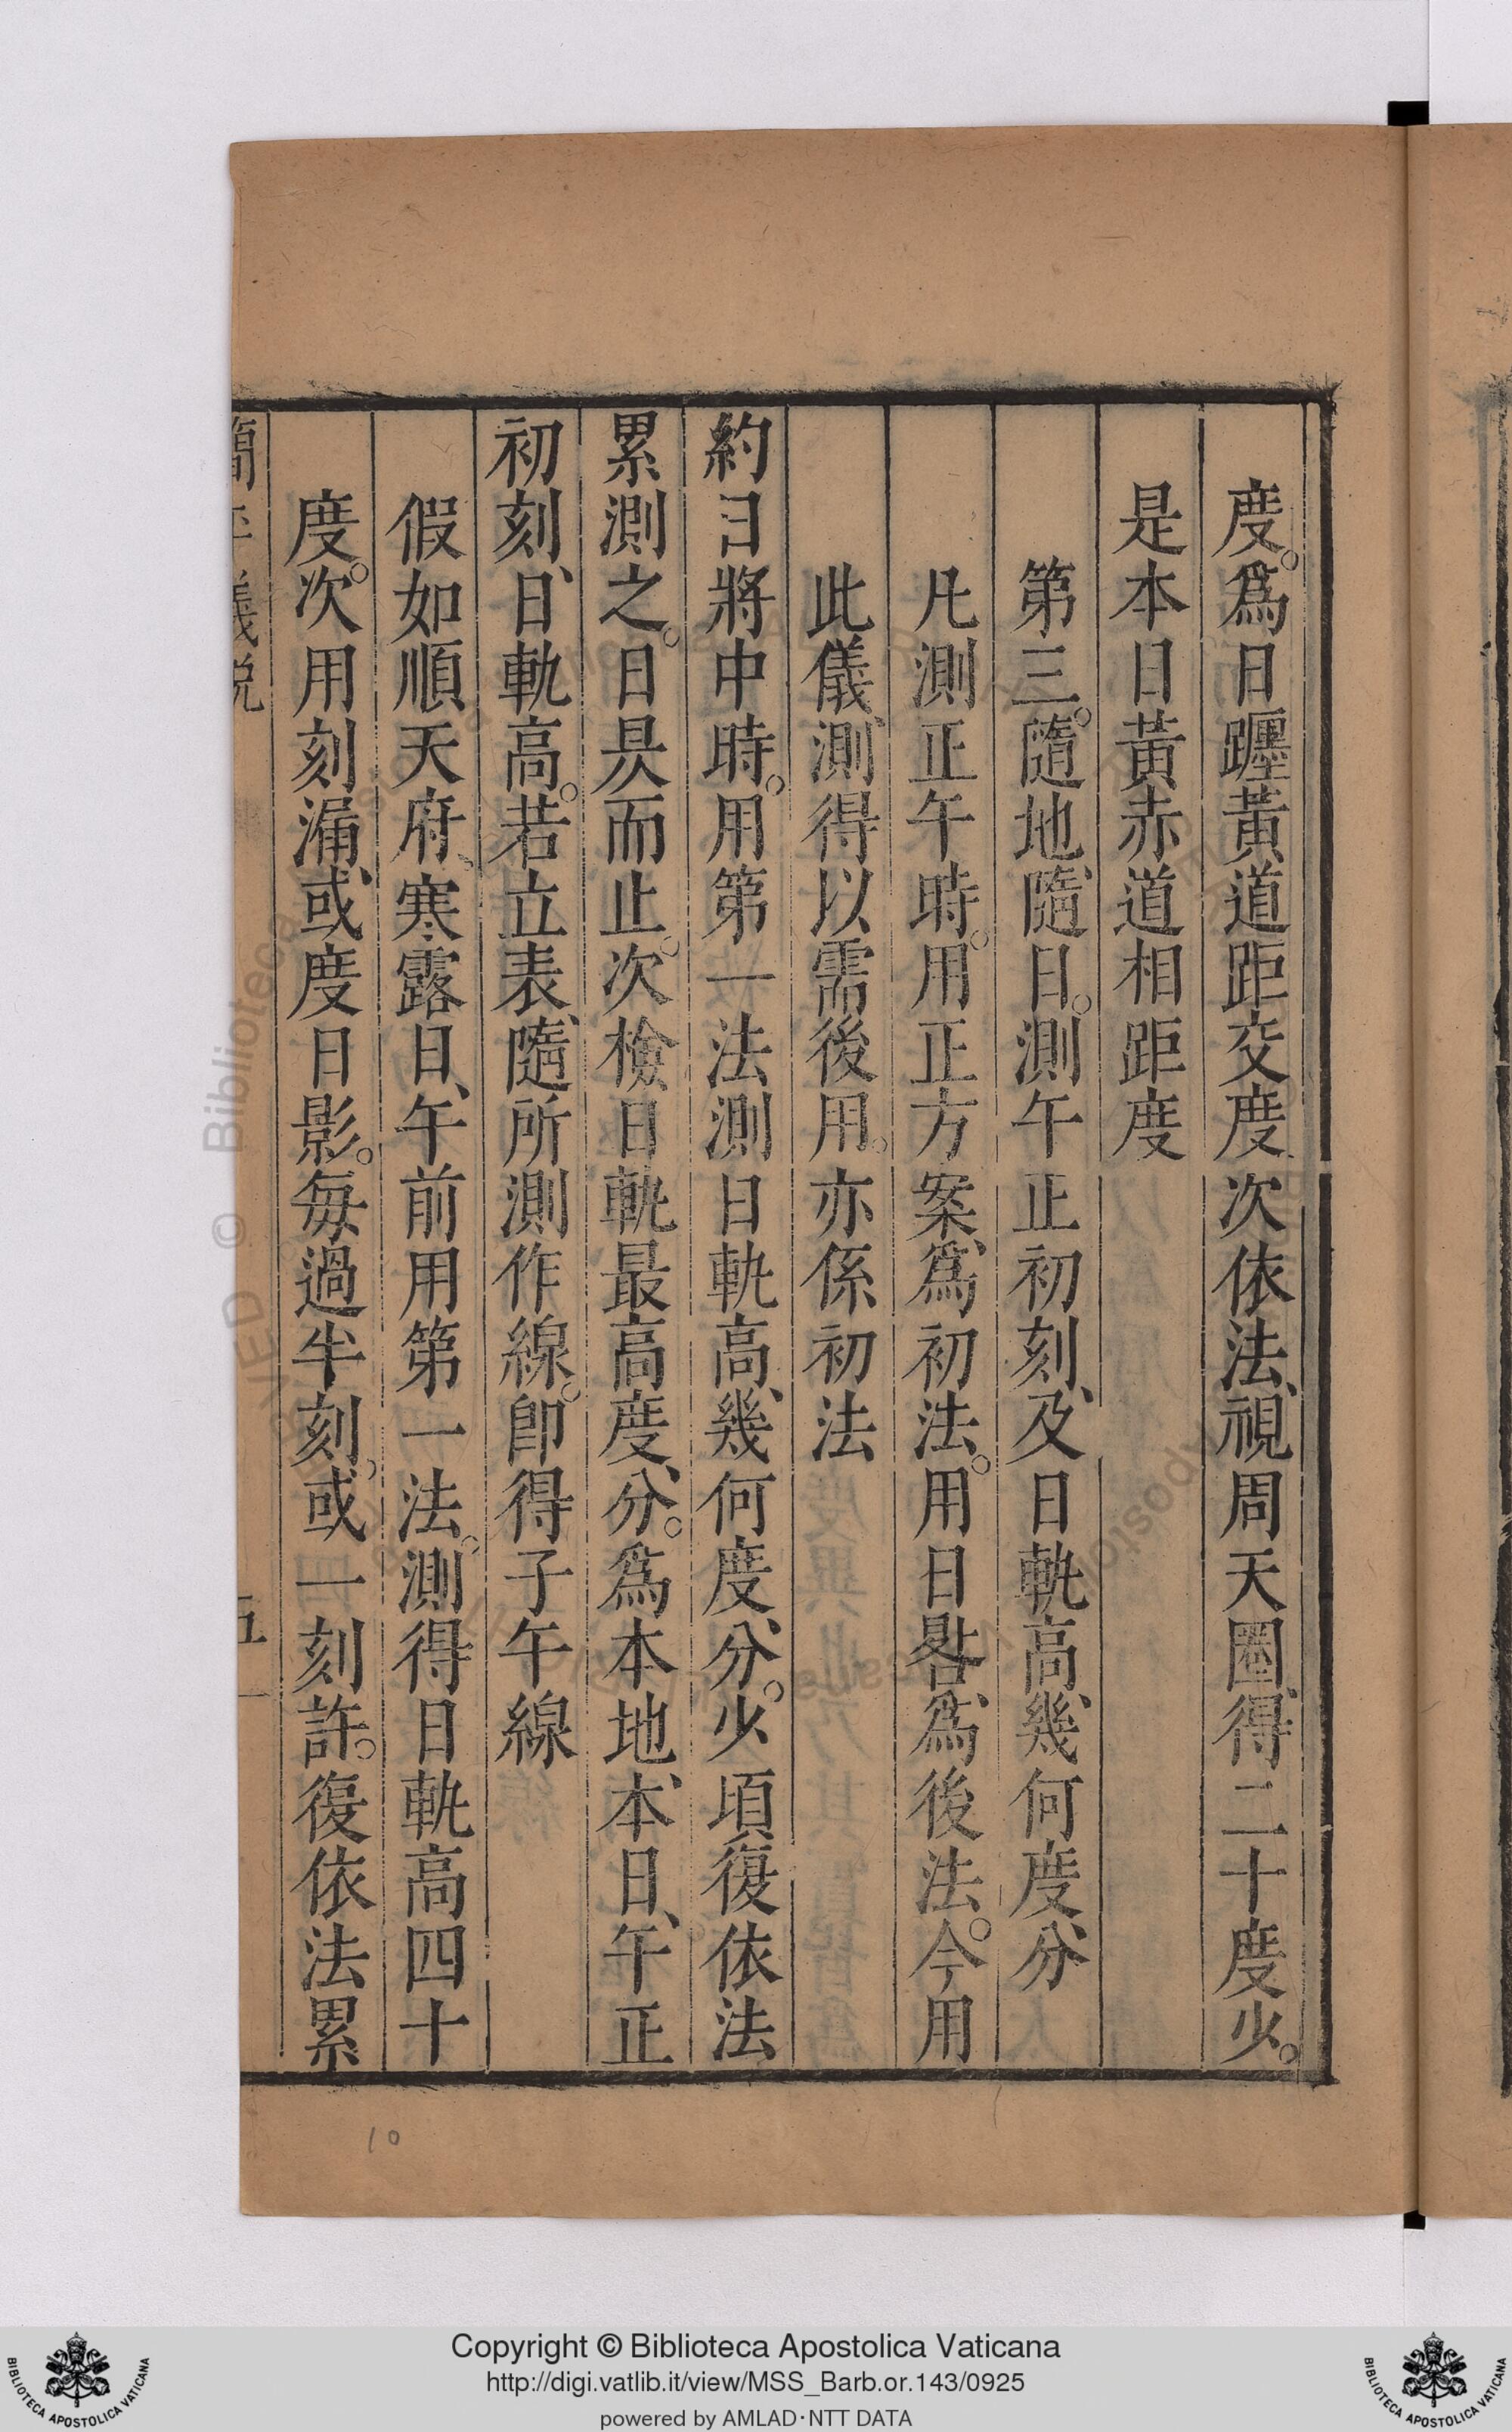 度。爲日躔黃道距交度次依法、視周天圈、得二十度少。
是本日黃赤道相距度
第三。隨地、隨日。測午正初刻、及日軌高、幾何度、分
凡測正午時。用正方案、爲初法。用日晷、爲後法。今用
此儀、測得以需後用。亦係初法
約日將中時。用第一法測日軌高、幾何度、分。少頃復依法
累測之。日昃而止。次檢日軌最高度、分。爲本地、本日、午正
初刻、日軌高。若立表、隨所測作線。卽得子午線
假如順天府、寒露日、午前用第一法。測得日軌高四十
度。次用刻漏、或度日影。每過半刻。或一刻許。復依法累
簡平儀說
五
10
Copyright © Biblioteca Apostolica Vaticana
http://digi.vatlib.it/view/MSS_Barb.or.143/0925
powered by AMLAD·NTT DATA
BIBLIOTECA APOSTOLICA VATICANA
BIBLIOTECA APOSTOLICA VATICANA